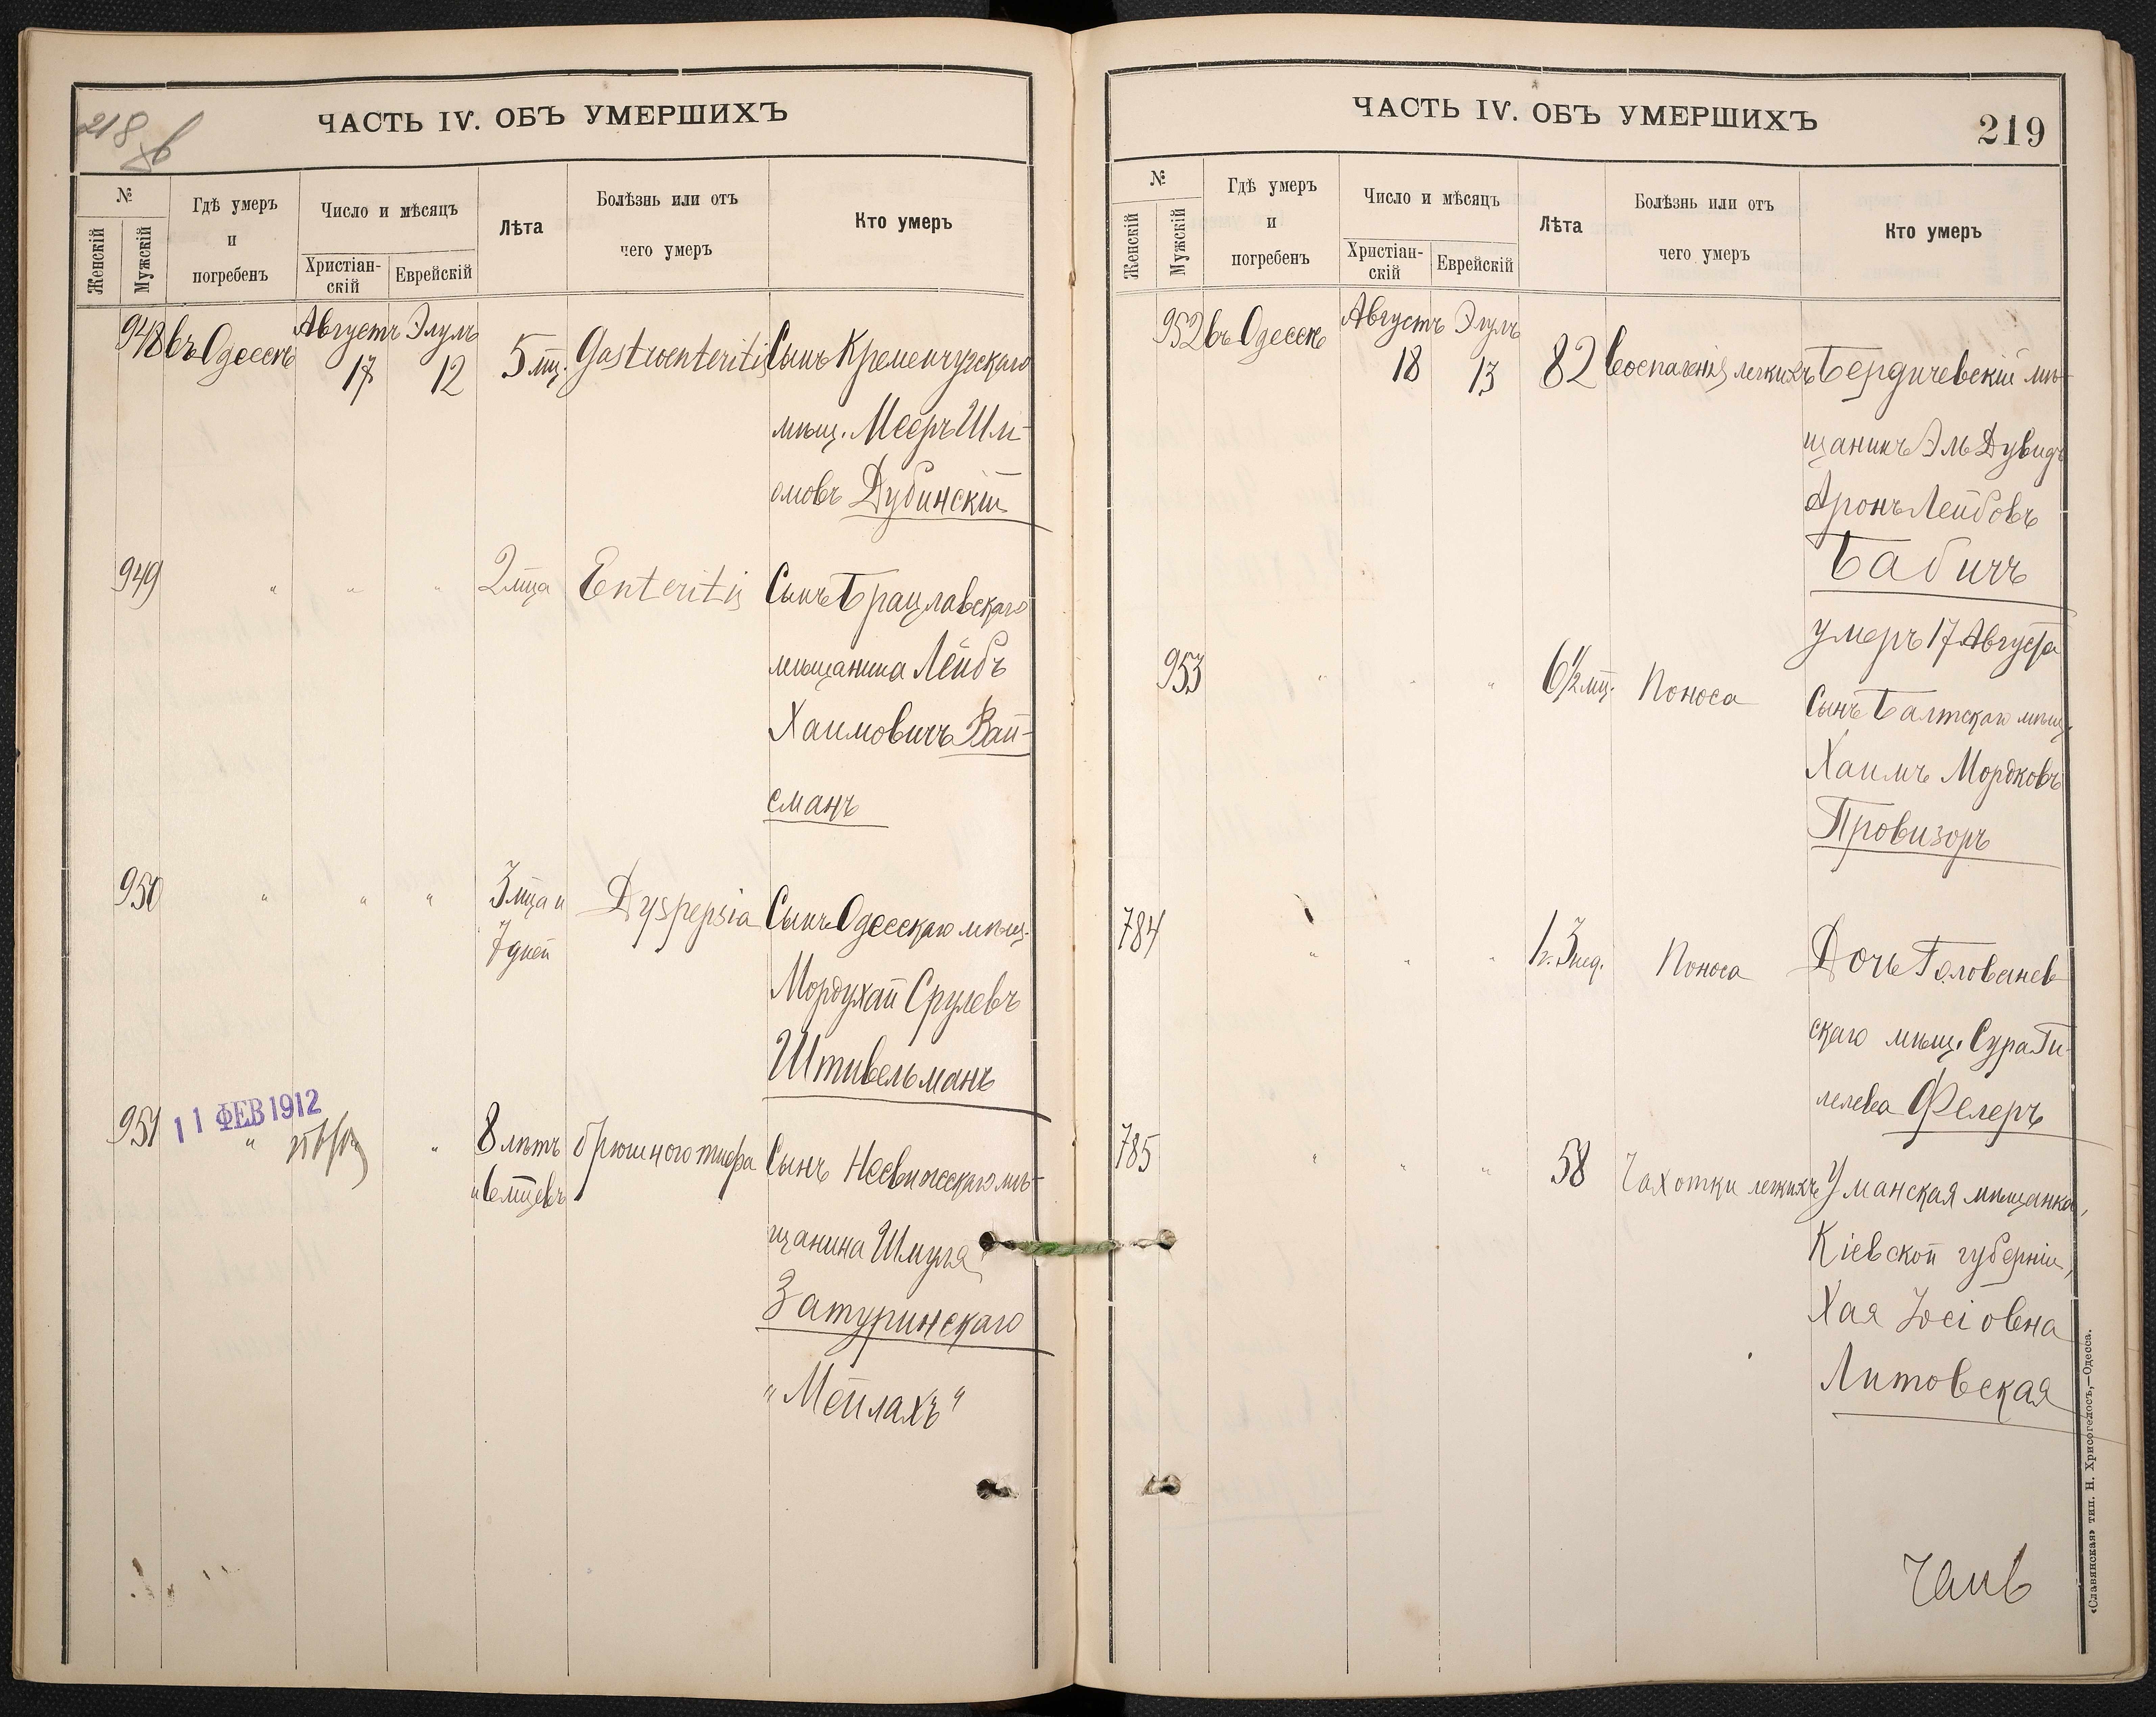 218 в
ЧАСТЬ IV. ОБЪ УМЕРШИХЪ
№
Женскій
Мужскій
Гдѣ умеръ
и
погребенъ
Число и мѣсяцъ
Христіан-
скій
Еврейскій
Лѣта
Болѣзнь или отъ
чего умеръ
Кто умеръ
948 въ Одессѣ Августъ 17 Элулъ 12 5 мц. Gastroenteritis Сынъ Кременчугскаго
мѣщ. Мееръ Шлі-
омовъ Дубинскій
949 " " " 2 мца Enteritis Сынъ Брацлавскаго
мѣщанина Лейбъ
Хаимовичъ Вай-
сманъ
950 " " " 3 мца и Dyspepsia Сынъ Одесскаго мѣщ.
7 дней
Мордухай Срулевъ
Штивельманъ
11 ФЕВ 1912
951 " " 8 лѣтъ брюшного тифа Сынъ Несвижскаго мѣ-
и 6 мцевъ
щанина Шмуля
Затуринскаго
"Мейлахъ"
ЧАСТЬ IV. ОБЪ УМЕРШИХЪ
219
№
Женскій
Мужскій
Гдѣ умеръ
и
погребенъ
Число и мѣсяцъ
Христіан-
скій
Еврейскій
Лѣта
Болѣзнь или отъ
чего умеръ
Кто умеръ
952 въ Одессѣ Августъ 18 Элулъ 13 82 Воспаленія легкихъ Бердичевскій мѣ-
щанинъ Эль Дувидъ
Аронъ Лейбовъ
Бабичъ
умеръ 17 Августа
953 " " " 6½ мц. Поноса Сынъ Балтскаго мѣщ.
Хаимъ Мордковъ
Провизоръ
784 " " " 1 г. 3 нед. Поноса Дочь Голованев
скаго мѣщ. Сура Ги-
лелева Фелеръ
785 " " " 58 Чахотки легкихъ Уманская мѣщанка,
Кіевской губерніи,
Хая Іосіовна
Литовская
«Славянская» тип. Н. Хрисогелосъ,—Одесса.